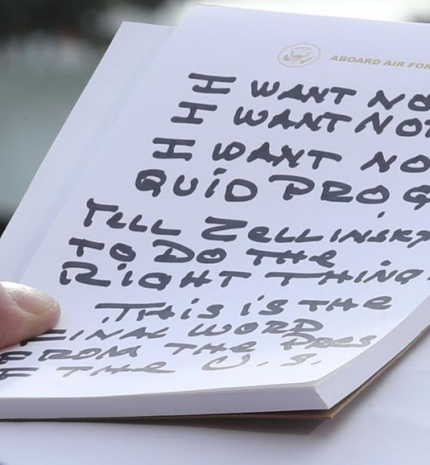 ABOARD AIR FOR
I WANT NO
I WANT NOT
I WANT NO
QUID PRO Q
TELL ZELLINSKY
TO DO THE
RIGHT THING
THIS IS THE
FINAL WORD
FROM THE PRES
OF THE U.S.